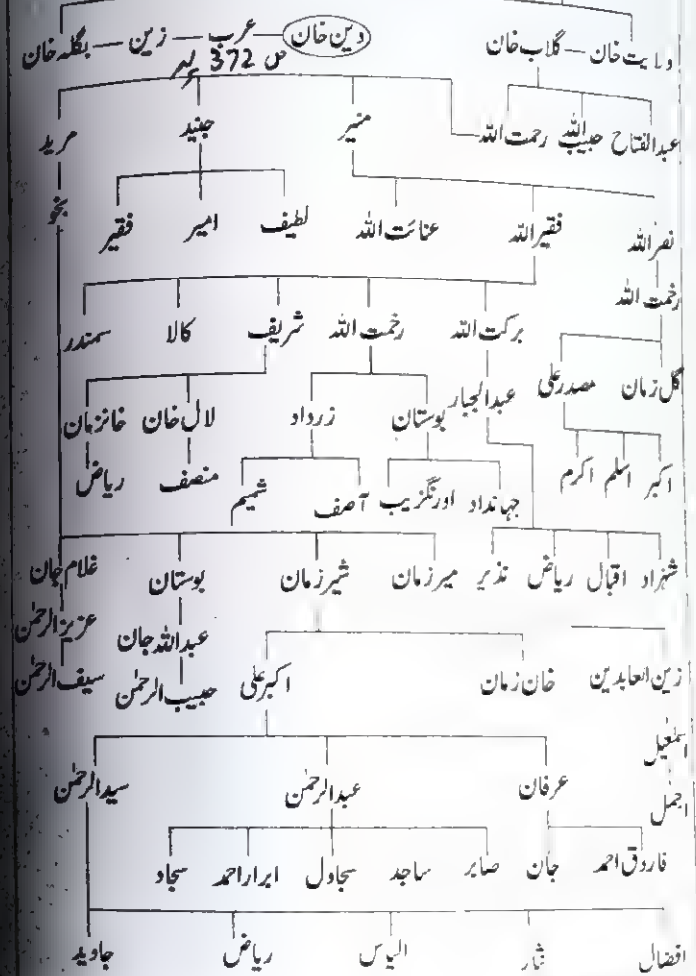 ولایت خان — گلاب خان دین خان — عرب — زین — بگلہ خان
ص 372 پر
عبدالفتاح حبیب اللہ رحمت اللہ منیر جنید مرید
نصر اللہ فقیر اللہ عنائت اللہ لطیف امیر فقیر
رحمت اللہ برکت اللہ رحمت اللہ شریف کالا سمندر
گل زمان مصدر علی عبدالجبار بوستان زرداد لال خان خانزمان
اکبر اسلم اکرم جہانداد اورنگزیب آصف شمیم منصف ریاض
شہزاد اقبال ریاض نذیر میر زمان شیر زمان بوستان غلام جان
عبداللہ جان عزیز الرحمٰن
زین العابدین خان زمان اکبر علی حبیب الرحمٰن سیف الرحمٰن
اسمٰعیل
اجمل عرفان عبدالرحمٰن سید الرحمٰن
فاروق احمد جان صابر ساجد سجاول ابرار احمد سجاد
افضال نثار الیاس ریاض جاوید